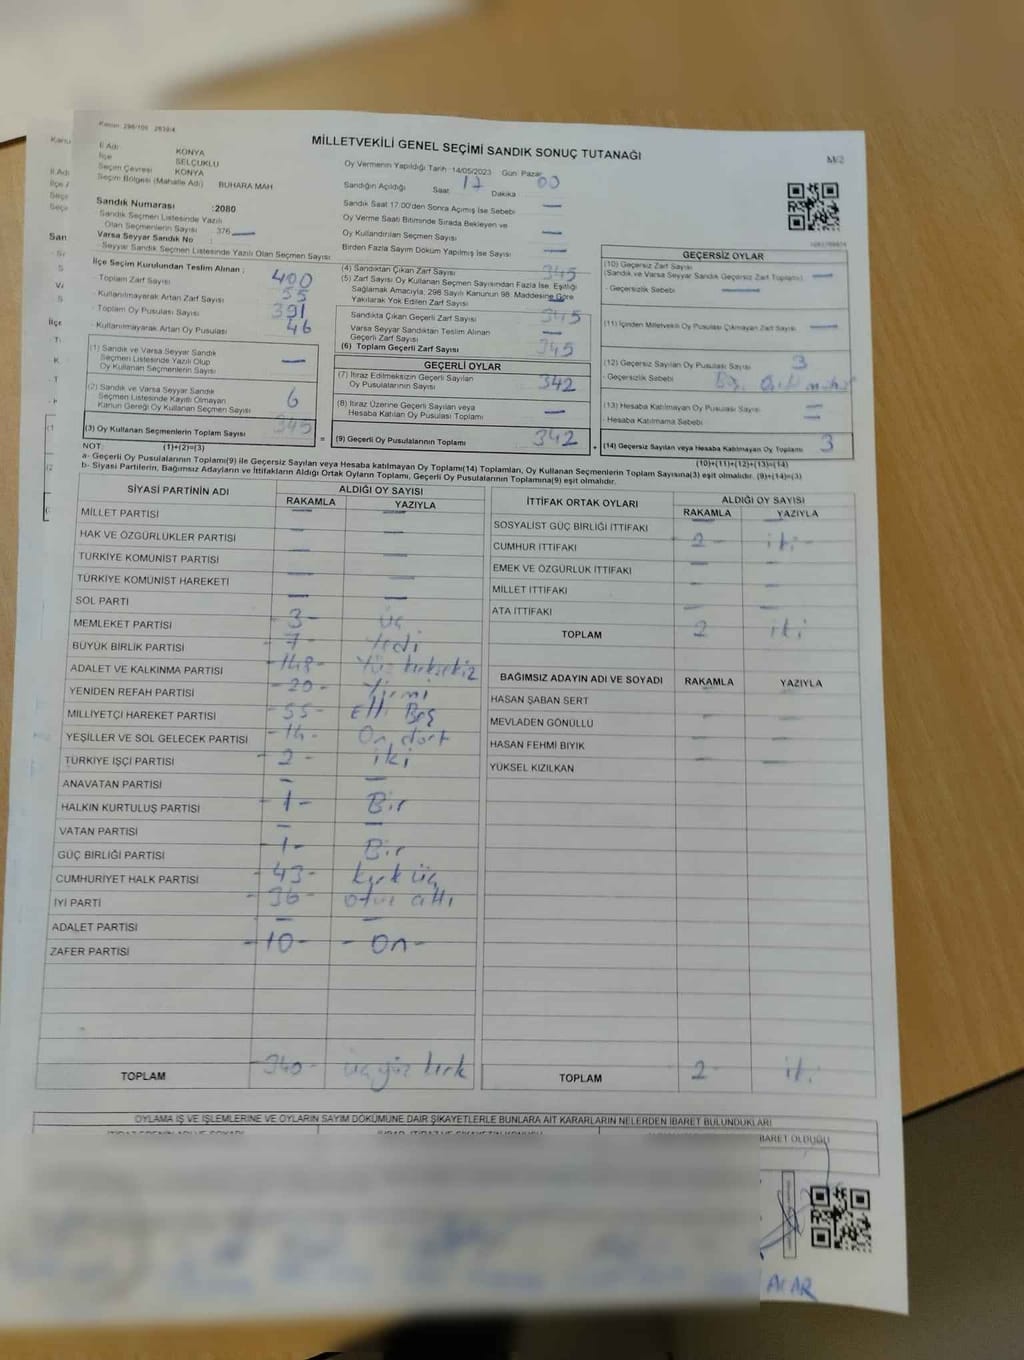 MİLLETVEKİLİ GENEL SEÇİMİ SANDIK SONUÇ TUTANAĞI
M/2
İl Adı : KONYA
İlçe SELÇUKLU
Seçim Çevresi KONYA
Seçim Bölgesi (Mahalle Adı) BUHARA MAH
Sandık Numarası :2080
Sandık Seçmen Listesinde Yazılı
Olan Seçmenlerin Sayısı : 376 —
Varsa Seyyar Sandık No :
Seyyar Sandık Seçmen Listesinde Yazılı Olan Seçmen Sayısı:
Oy Vermenin Yapıldığı Tarih : 14/05/2023 Gün : Pazar
Sandığın Açıldığı Saat 17 Dakika 00
Sandık Saat 17.00'den Sonra Açılmış İse Sebebi —
Oy Verme Saati Bitiminde Sırada Bekleyen ve
Oy Kullandırılan Seçmen Sayısı —
Birden Fazla Sayım Döküm Yapılmış İse Sayısı —
İlçe Seçim Kurulundan Teslim Alınan ;
- Toplam Zarf Sayısı 400
- Kullanılmayarak Artan Zarf Sayısı 55
- Toplam Oy Pusulası Sayısı 391
- Kullanılmayarak Artan Oy Pusulası 46
(1) Sandık ve Varsa Seyyar Sandık
Seçmen Listesinde Yazılı Olup
Oy Kullanan Seçmenlerin Sayısı —
(2) Sandık ve Varsa Seyyar Sandık
Seçmen Listesinde Kayıtlı Olmayan
Kanun Gereği Oy Kullanan Seçmen Sayısı 6
(3) Oy Kullanan Seçmenlerin Toplam Sayısı 345
(1)+(2)=(3)
(4) Sandıktan Çıkan Zarf Sayısı 345
(5) Zarf Sayısı Oy Kullanan Seçmen Sayısından Fazla İse, Eşitliği
Sağlamak Amacıyla; 298 Sayılı Kanunun 98. Maddesine Göre
Yakılarak Yok Edilen Zarf Sayısı —
Sandıkta Çıkan Geçerli Zarf Sayısı 345
Varsa Seyyar Sandıktan Teslim Alınan
Geçerli Zarf Sayısı —
(6) Toplam Geçerli Zarf Sayısı 345
GEÇERLİ OYLAR
(7) İtiraz Edilmeksizin Geçerli Sayılan
Oy Pusulalarının Sayısı 342
(8) İtiraz Üzerine Geçerli Sayılan veya
Hesaba Katılan Oy Pusulası Toplamı —
= (9) Geçerli Oy Pusulalarının Toplamı 342
GEÇERSİZ OYLAR
(10) Geçersiz Zarf Sayısı
(Sandık ve Varsa Seyyar Sandık Geçersiz Zarf Toplamı) —
- Geçersizlik Sebebi —
(11) İçinden Milletvekili Oy Pusulası Çıkmayan Zarf Sayısı —
(12) Geçersiz Sayılan Oy Pusulası Sayısı 3
- Geçersizlik Sebebi
(13) Hesaba Katılmayan Oy Pusulası Sayısı —
- Hesaba Katılmama Sebebi —
+ (14) Geçersiz Sayılan veya Hesaba Katılmayan Oy Toplamı 3
(10)+(11)+(12)+(13)=(14)
NOT:
a- Geçerli Oy Pusulalarının Toplamı(9) ile Geçersiz Sayılan veya Hesaba katılmayan Oy Toplamı(14) Toplamları, Oy Kullanan Seçmenlerin Toplam Sayısına(3) eşit olmalıdır. (9)+(14)=(3)
b- Siyasi Partilerin, Bağımsız Adayların ve İttifakların Aldığı Ortak Oyların Toplamı, Geçerli Oy Pusulalarının Toplamına(9) eşit olmalıdır.
SİYASİ PARTİNİN ADI ALDIĞI OY SAYISI
RAKAMLA YAZIYLA
MİLLET PARTİSİ — —
HAK VE ÖZGÜRLÜKLER PARTİSİ — —
TÜRKİYE KOMÜNİST PARTİSİ — —
TÜRKİYE KOMÜNİST HAREKETİ — —
SOL PARTİ — —
MEMLEKET PARTİSİ 3- üç
BÜYÜK BİRLİK PARTİSİ 7- Yedi
ADALET VE KALKINMA PARTİSİ -148- Yüz kırksekiz
YENİDEN REFAH PARTİSİ -20- Yirmi
MİLLİYETÇİ HAREKET PARTİSİ -55- Elli Beş
YEŞİLLER VE SOL GELECEK PARTİSİ -14- On dört
TÜRKİYE İŞÇİ PARTİSİ -2- iki
ANAVATAN PARTİSİ — —
HALKIN KURTULUŞ PARTİSİ -1- Bir
VATAN PARTİSİ — —
GÜÇ BİRLİĞİ PARTİSİ -1- Bir
CUMHURİYET HALK PARTİSİ -43- kırk üç
İYİ PARTİ -36- otuz altı
ADALET PARTİSİ — —
ZAFER PARTİSİ -10- -On-
TOPLAM -340- üçyüz kırk
İTTİFAK ORTAK OYLARI ALDIĞI OY SAYISI
RAKAMLA YAZIYLA
SOSYALİST GÜÇ BİRLİĞİ İTTİFAKI — —
CUMHUR İTTİFAKI -2- iki-
EMEK VE ÖZGÜRLÜK İTTİFAKI — —
MİLLET İTTİFAKI — —
ATA İTTİFAKI — —
TOPLAM 2 iki
BAĞIMSIZ ADAYIN ADI VE SOYADI RAKAMLA YAZIYLA
HASAN ŞABAN SERT — —
MEVLADEN GÖNÜLLÜ — —
HASAN FEHMİ BIYIK — —
YÜKSEL KIZILKAN — —
TOPLAM 2- iki
OYLAMA İŞ VE İŞLEMLERİNE VE OYLARIN SAYIM DÖKÜMÜNE DAİR ŞİKAYETLERLE BUNLARA AİT KARARLARIN NELERDEN İBARET BULUNDUKLARI
İBARET OLDUĞU
ACAR